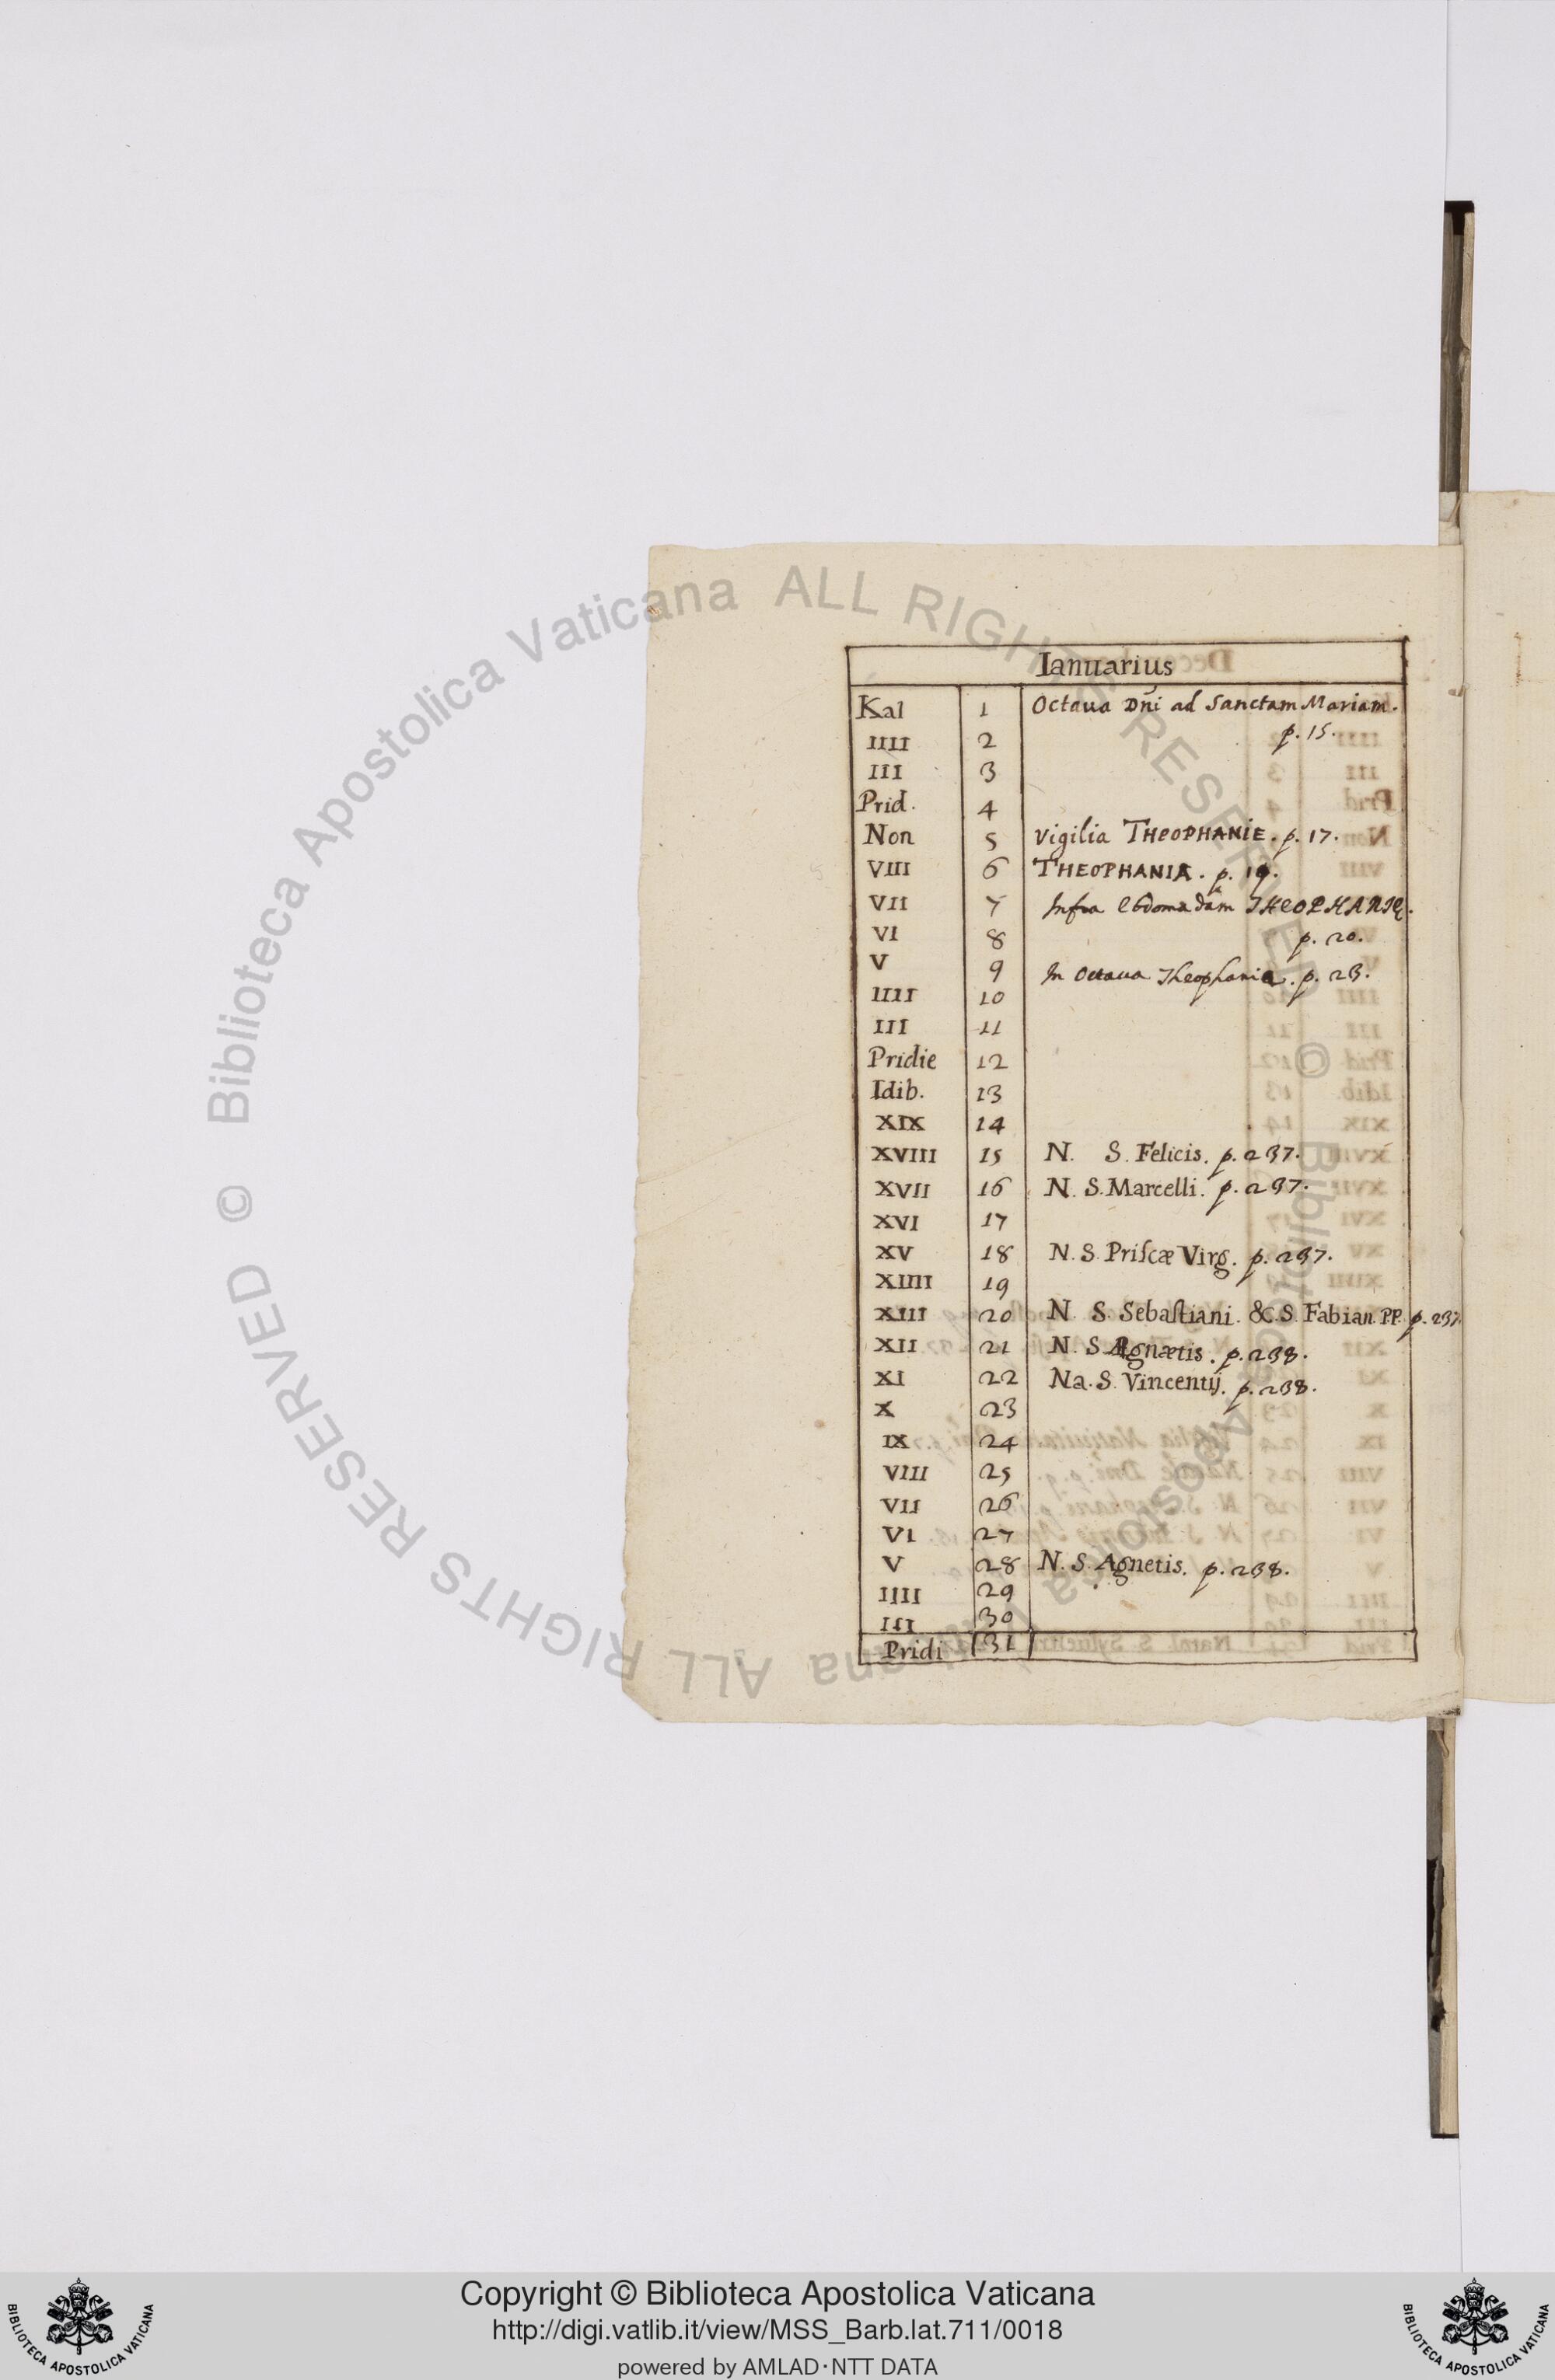 Ianuarius
Kal 1 Octaua Dñi ad Sanctam Mariam.
p. 15.
IIII 2
III 3
Prid. 4
Non 5 Vigilia THEOPHANIE. p. 17.
VIII 6 THEOPHANIA. p. 19.
VII 7 Infra Ebdomadam THEOPHANIE.
VI 8 p. 20.
V 9 In Octaua Theophaniæ. p. 23.
IIII 10
III 11
Pridie 12
Idib. 13
XIX 14
XVIII 15 N. S. Felicis. p. 237.
XVII 16 N. S. Marcelli. p. 237.
XVI 17
XV 18 N. S. Priſcæ Virg. p. 237.
XIIII 19
XIII 20 N. S. Sebaſtiani. & S. Fabian. PP. p. 237.
XII 21 N. S. Agnætis. p. 238.
XI 22 Na. S. Vincentij. p. 238.
X 23
IX 24
VIII 25
VII 26
VI 27
V 28 N. S. Agnetis. p. 238.
IIII 29
III 30
Pridi 31
© Biblioteca Apostolica Vaticana ALL RIGHTS RESERVED © Biblioteca Apostolica Vaticana ALL RIGHTS RESERVED
Copyright © Biblioteca Apostolica Vaticana
http://digi.vatlib.it/view/MSS_Barb.lat.711/0018
powered by AMLAD·NTT DATA
BIBLIOTECA APOSTOLICA VATICANA
BIBLIOTECA APOSTOLICA VATICANA